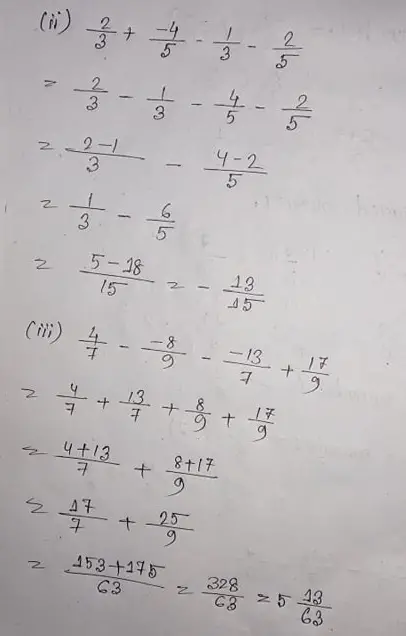 (ii) 2/3 + -4/5 - 1/3 - 2/5
= 2/3 - 1/3 - 4/5 - 2/5
= 2-1/3 - 4-2/5
= 1/3 - 6/5
= 5-18/15 = - 13/15
(iii) 4/7 - -8/9 - -13/7 + 17/9
= 4/7 + 13/7 + 8/9 + 17/9
= 4+13/7 + 8+17/9
= 17/7 + 25/9
= 153+175/63 = 328/63 = 5 13/63